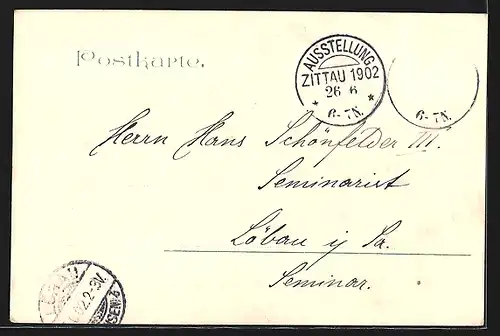 Postkarte.
AUSSTELLUNG
ZITTAU 1902
26 6
* 6-7N. *
6-7N.
Herrn Hans Schönfelder III.
Seminarist
Löbau i/ Sa.
Seminar.
LÖBAU
02.2-3V.